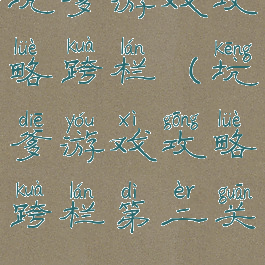 坑爹游戏攻
lüè kuà lán kēng
略跨栏（坑
diē yóu xì gōng lüè
爹游戏攻略
kuà lán dì èr guān
跨栏第二关